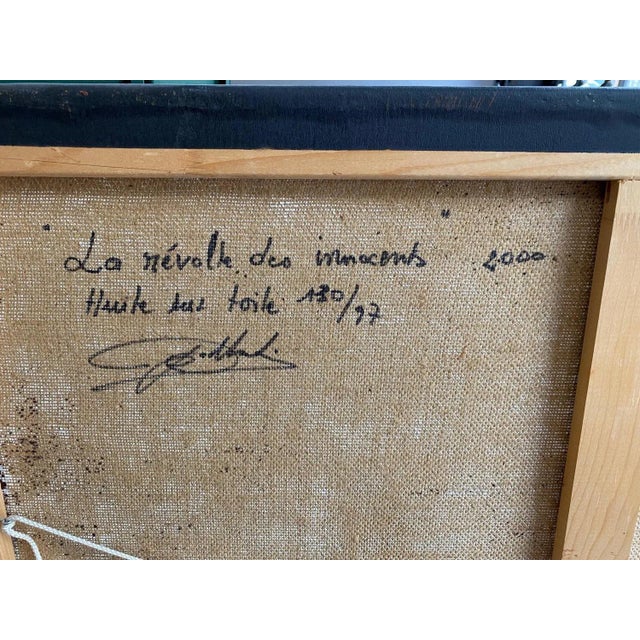 "La révolte des innocents" 2000.
Huile sur toile 130/97